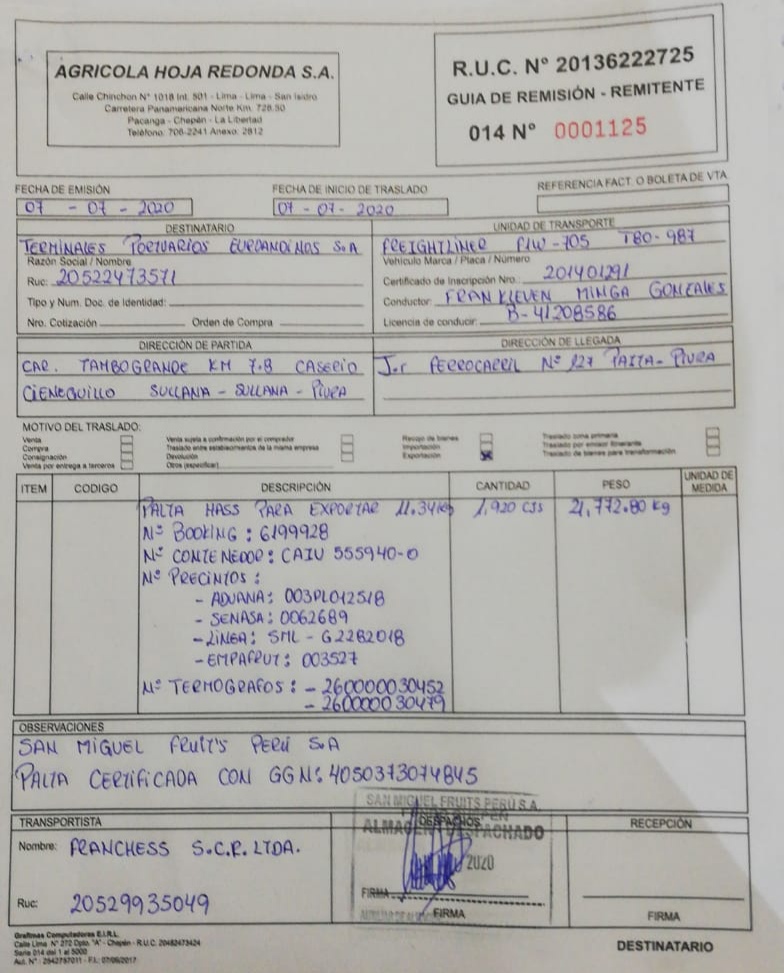 AGRICOLA HOJA REDONDA S.A.
Calle Chinchon N° 1018 Int. 501 - Lima - Lima - San Isidro
Carretera Panamericana Norte Km. 728.50
Pacanga - Chepén - La Libertad
Teléfono: 706-2241 Anexo: 2812
R.U.C. N° 20136222725
GUIA DE REMISIÓN - REMITENTE
014 N° 0001125
FECHA DE EMISIÓN
07 - 07 - 2020
FECHA DE INICIO DE TRASLADO
07 - 07 - 2020
REFERENCIA FACT. O BOLETA DE VTA.
DESTINATARIO
TERMINALES PORTUARIOS EUROANDINOS S.A
Razón Social / Nombre
Ruc: 20522473571
Tipo y Num. Doc. de Identidad:
Nro. Cotización Orden de Compra
UNIDAD DE TRANSPORTE
FREIGHTLINER P1W-705 TB0-987
Vehículo Marca / Placa / Número
Certificado de Inscripción Nro. 201401291
Conductor: FRANKLEVEN MINGA GONZALES
Licencia de conducir. B-41208586
DIRECCIÓN DE PARTIDA
CAR. TAMBOGRANDE KM 7.8 CASERIO
CIENEGUILLO SULLANA - SULLANA - PIURA
DIRECCIÓN DE LLEGADA
J.r FERROCARRIL N° 127 PAITA - PIURA
MOTIVO DEL TRASLADO:
Venta
Compra
Consignación
Venta por entrega a terceros
Venta sujeta a confirmación por el comprador
Traslado entre establecimientos de la misma empresa
Devolución
Otros (especificar)
Recojo de bienes
Importación
Exportación X
Traslado zona primaria
Traslado por emisor itinerante
Traslado de bienes para transformación
ITEM CODIGO DESCRIPCIÓN CANTIDAD PESO UNIDAD DE MEDIDA
PALTA HASS PARA EXPORTAR 11.34kg 1,920 CJS 21,772.80 kg
N° BOOKING : 6199928
N° CONTENEDOR : CAIU 555940-0
N° PRECINTOS :
- ADUANA: 003PL012518
- SENASA: 0062689
- LÍNEA: SML - G2282018
- EMPAFRUT: 003527
N° TERMOGRAFOS : - 260000030452
- 260000030479
OBSERVACIONES
SAN MIGUEL FRUIT'S PERÚ S.A
PALTA CERTIFICADA CON GGN: 4050373074845
TRANSPORTISTA
Nombre: FRANCHESS S.C.R. LTDA.
Ruc: 20529935049
SAN MIGUEL FRUITS PERÚ S.A.
DESPACHOS
ALMACEN DESPACHADO
2020
FIRMA
FIRMA
RECEPCIÓN
FIRMA
Grafimas Computadores E.I.R.L.
Calle Lima N° 272 Dpto. "A" - Chepén - R.U.C. 20482473424
Serie 014 del 1 al 5000
Aut. N° : 2642787011 - F.I.: 07/06/2017
DESTINATARIO